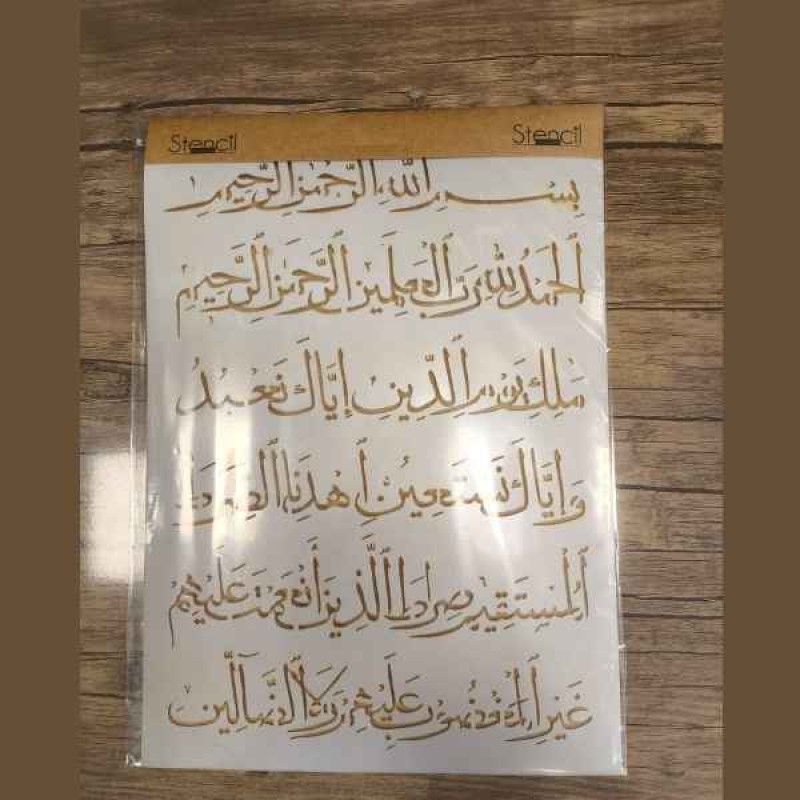 Stencil Stencil
بِسْمِ اللهِ الرَّحْمٰنِ الرَّحِيمِ
اَلْحَمْدُ لِلّٰهِ رَبِّ الْعٰلَمِينَ الرَّحْمٰنِ الرَّحِيمِ
مٰلِكِ يَوْمِ الدِّينِ إِيَّاكَ نَعْبُدُ
وَإِيَّاكَ نَسْتَعِينُ اِهْدِنَا الصِّرَاطَ
الْمُسْتَقِيمَ صِرَاطَ الَّذِينَ أَنْعَمْتَ عَلَيْهِمْ
غَيْرِ الْمَغْضُوبِ عَلَيْهِمْ وَلَا الضَّالِّينَ